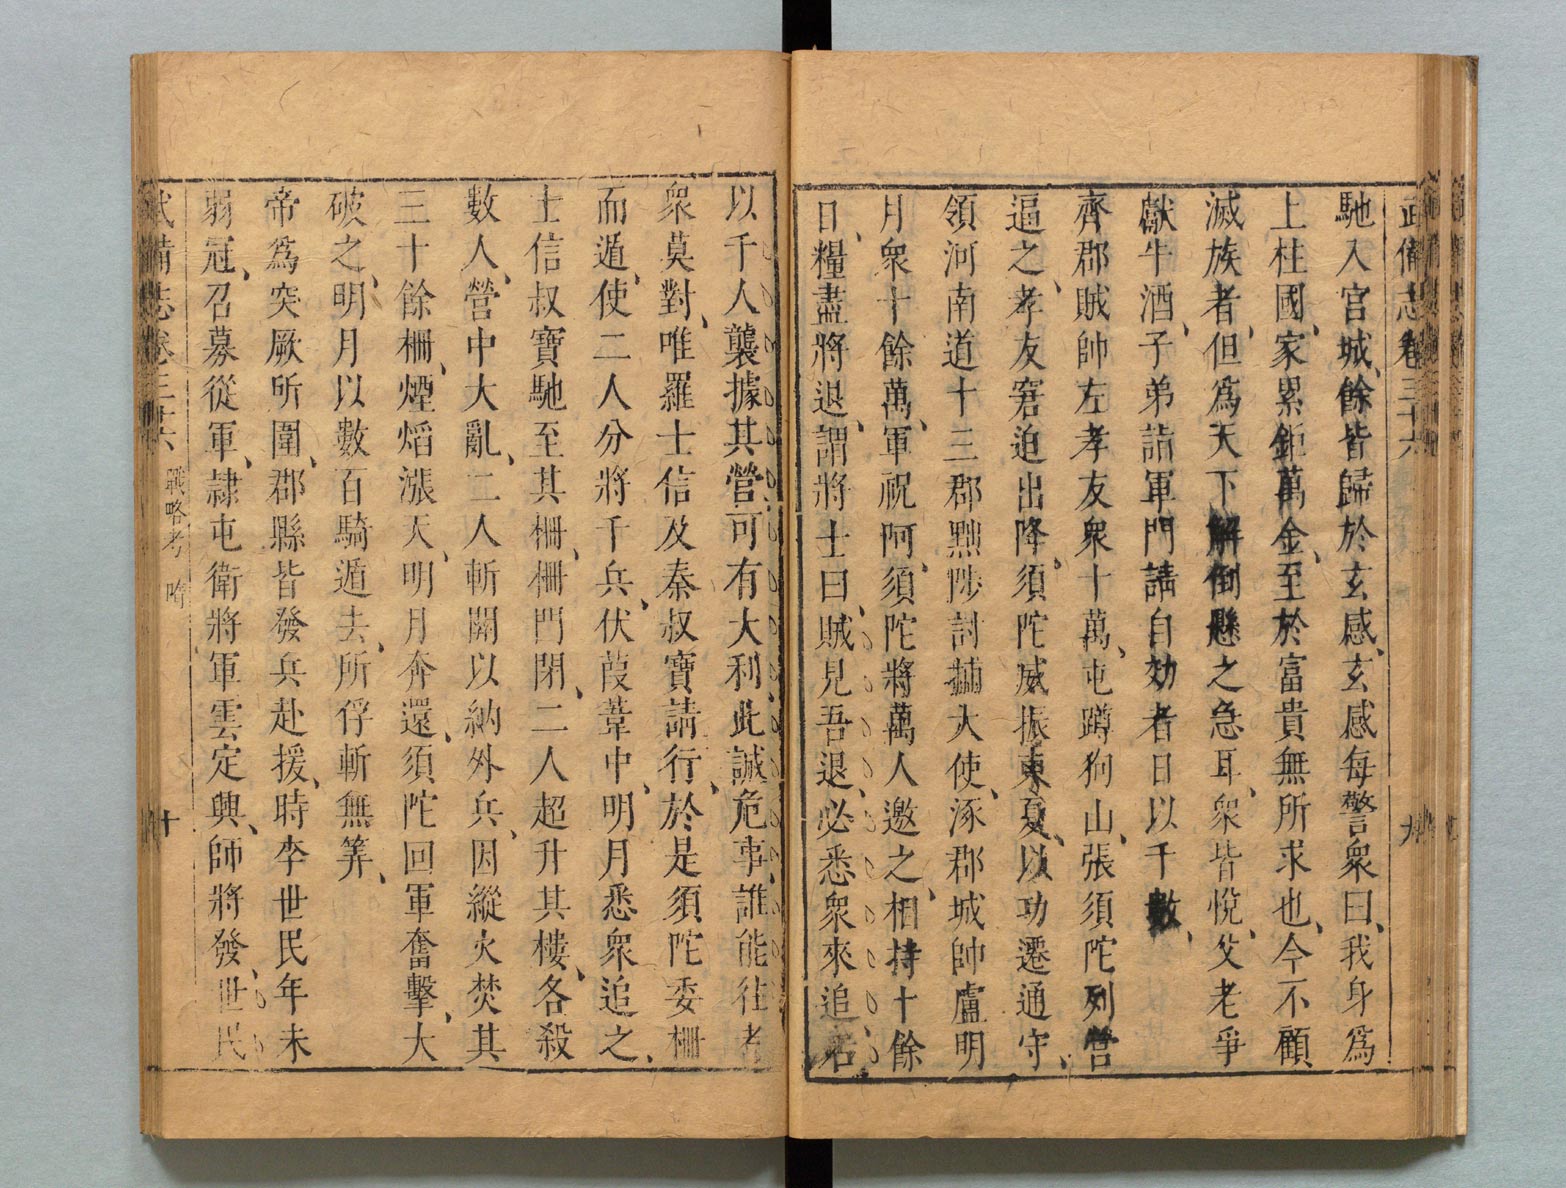 武備志卷三十六
九
馳入宮城、餘皆歸於玄感、玄感每警衆曰、我身爲
上柱國、家累鉅萬金、至於富貴無所求也、今不顧
滅族者、但爲天下解倒懸之急耳、衆皆悅、父老爭
獻牛酒、子弟詣軍門請自効者日以千數、
齊郡賊帥左孝友衆十萬、屯蹲狗山、張須陀列營
逼之、孝友窘迫出降、須陀威振東夏、以功遷通守、
領河南道十三郡黜陟討捕大使、涿郡城帥盧明
月衆十餘萬、軍祝阿、須陀將萬人邀之、相持十餘
日、糧盡將退、謂將士曰、賊見吾退、必悉衆來追、若
以千人襲據其營可有大利、此誠危事、誰能往者
衆莫對、唯羅士信及秦叔寶請行、於是須陀委柵
而遁、使二人分將千兵、伏葭葦中、明月悉衆追之、
士信叔寶馳至其柵、柵門閉、二人超升其樓、各殺
數人、營中大亂、二人斬關以納外兵、因縱火焚其
三十餘柵、煙熖漲天、明月奔還、須陀回軍奮擊、大
破之、明月以數百騎遁去、所俘斬無筭、
帝爲突厥所圍、郡縣皆發兵赴援、時李世民年未
弱冠、召募從軍、隷屯衛將軍雲定興、師將發、世民
武備志卷三十六 戰略考 隋
十